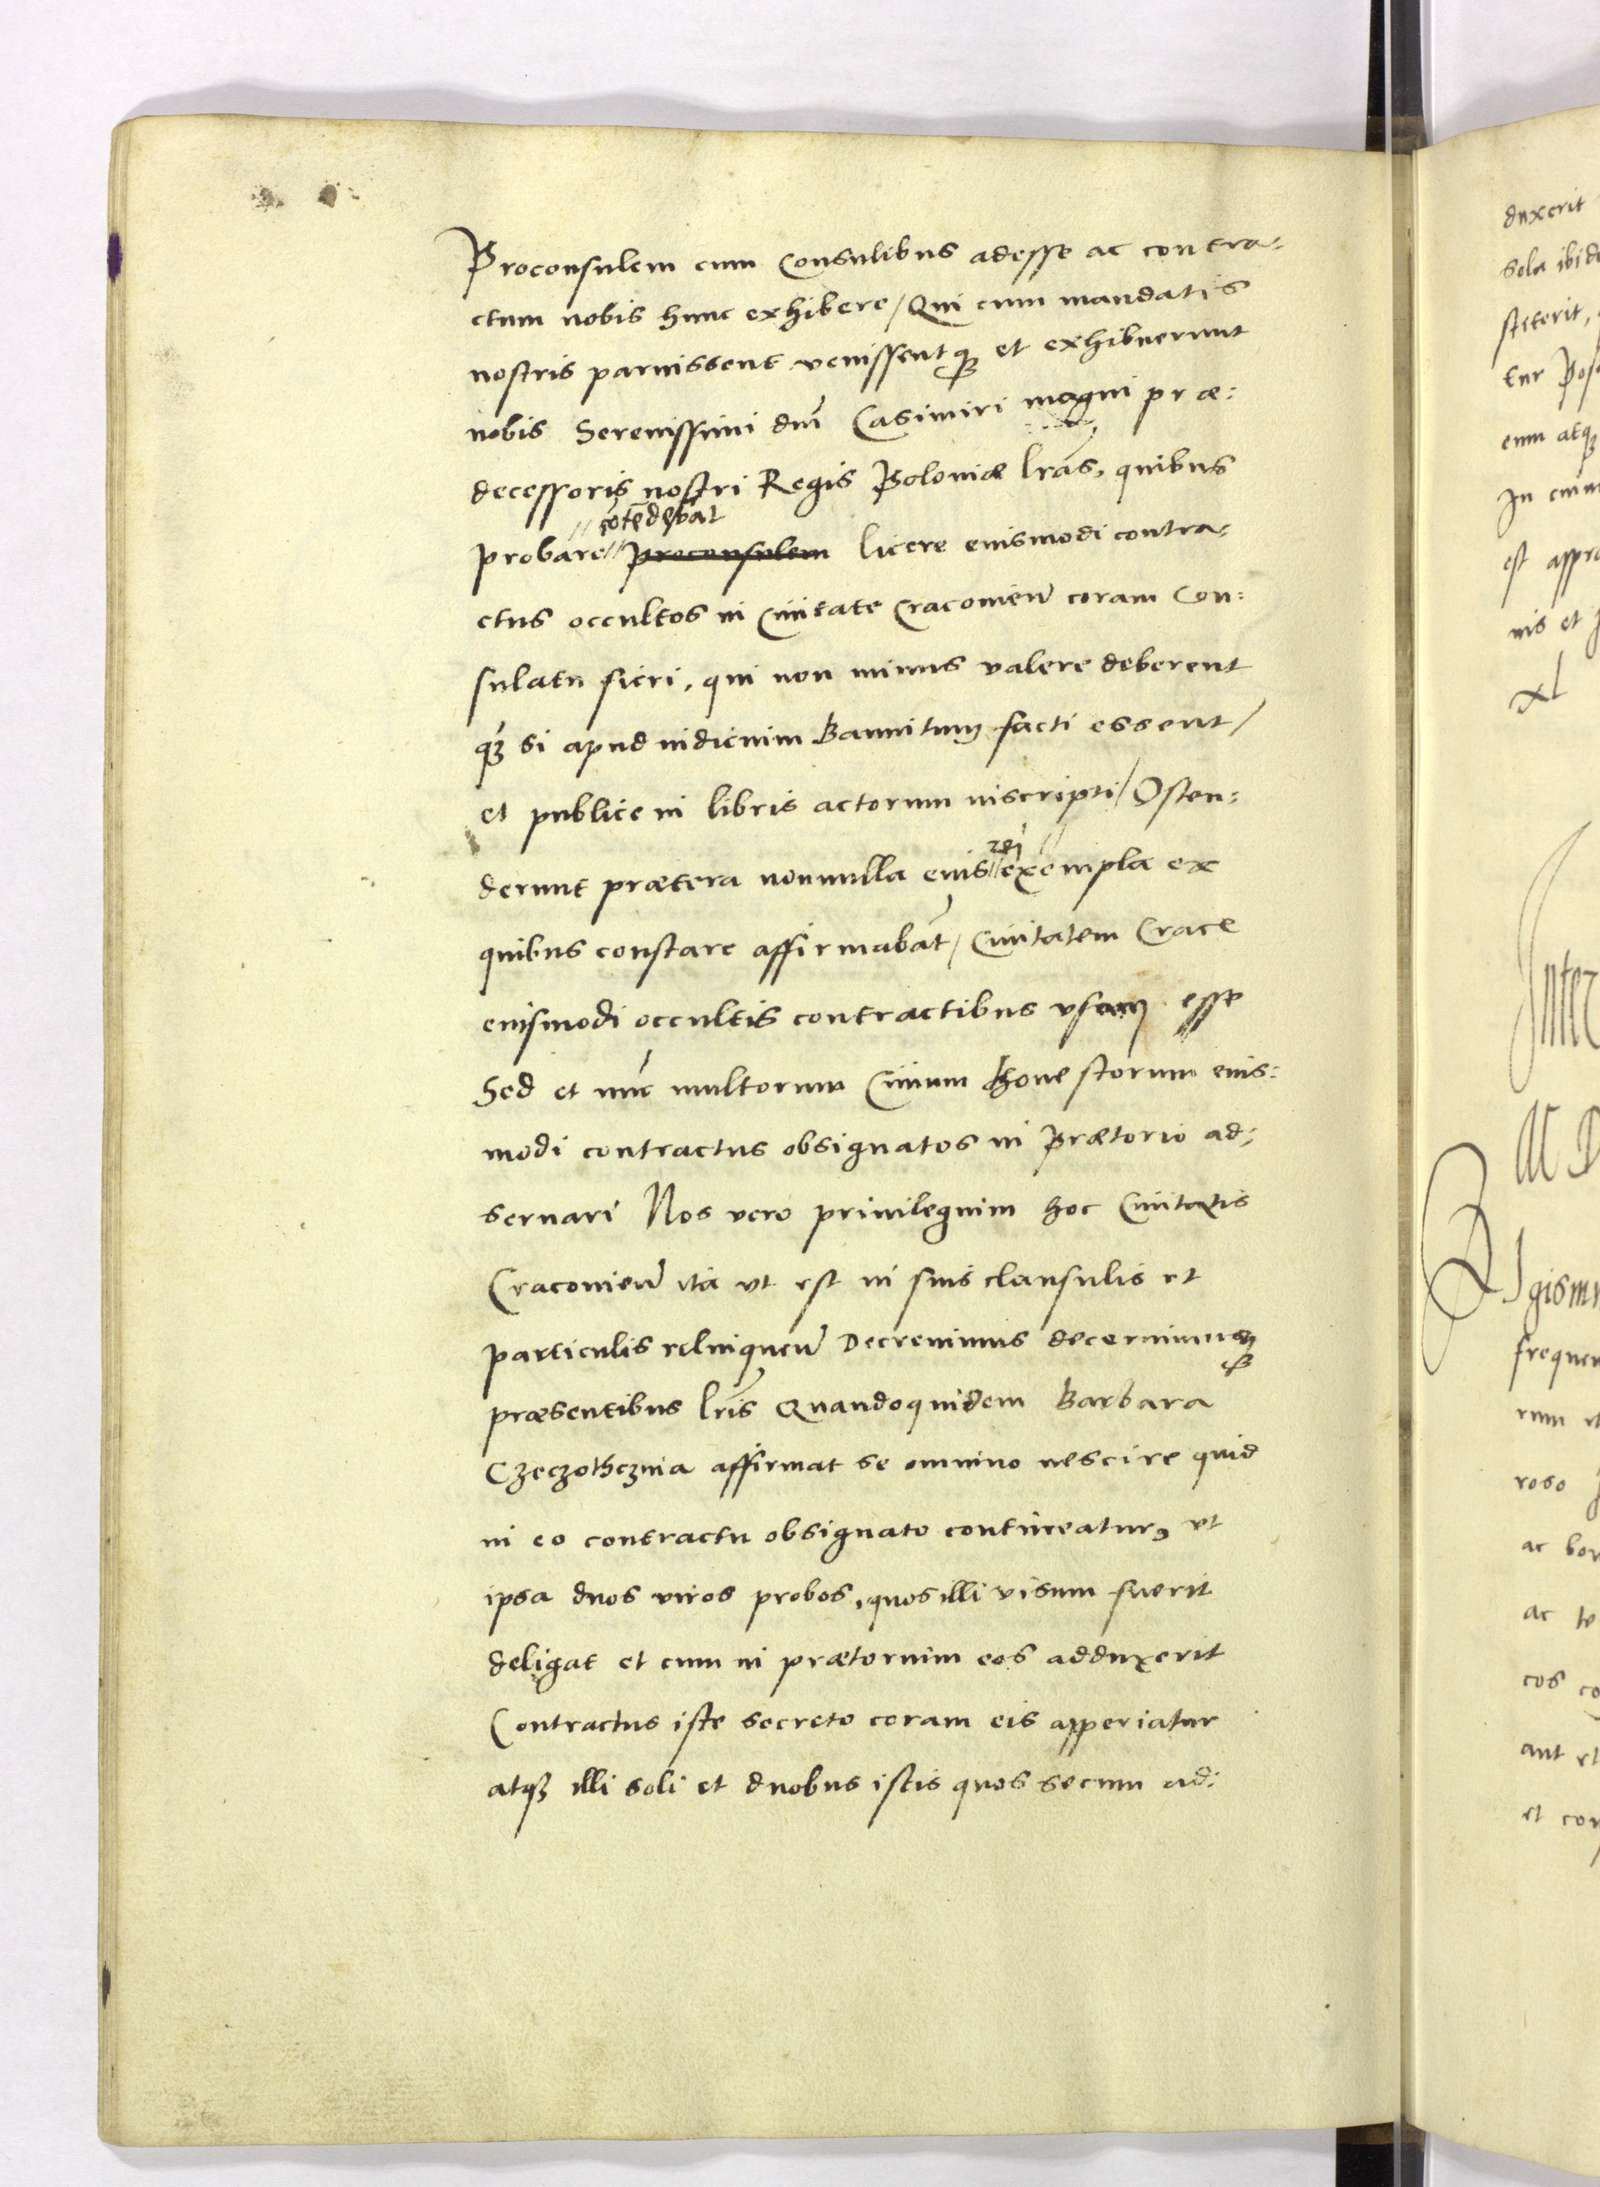 Proconsulem cum Consulibus adesse ac contra-
ctum nobis hunc exhibere / Qui cum mandatis
nostris paruissent venissentqꝫ et exhibuerunt
nobis Serenissimi dm̄ Casimiri magni præ:
decessoris nostri Regis Poloniæ lrās, quibus
cōtēdebāt
probare proconsulem licere eiusmodi contra-
ctus occultos in Ciuitate Cracouien̄ coram Con:
sulatu fieri, qui non minus valere deberent
qꝫ si apud iudicium Bannitum facti essent /
et publice in libris actorum inscripti / Osten:
rei
derunt prætera nonnulla eius exempla ex
quibus constare affirmabāt / Ciuitatem Crace
eiusmodi occultis contractibus vsam esse
Sed et nūc multorum Ciuium honestorum eius:
modi contractus obsignatos in Prætorio ad:
seruari Nos vero priuilegium hoc Ciuitatis
Cracouien̄ ita vt est in suis clausulis et
particulis relinquen̄ Decreuimus decernimusqꝫ
præsentibus lrīs Quandoquidem Barbara
Czeczothcznia affirmat se omnino nescire quid
in eo contractu obsignato contineatur, vt
ipsa duos viros probos, quos illi visum fuerit
deligat et cum in prætorium eos adduxerit
Contractus iste secreto coram eis apperiatur
atqꝫ illi soli et duobus istis quos secum ad:
duxerit
sola
steterit,
tur
eum atqꝫ
In
est
nis et
xl
Inter
M D
Sgism
frequen
rum
roso
ac
ac te
cos
aut et
et con